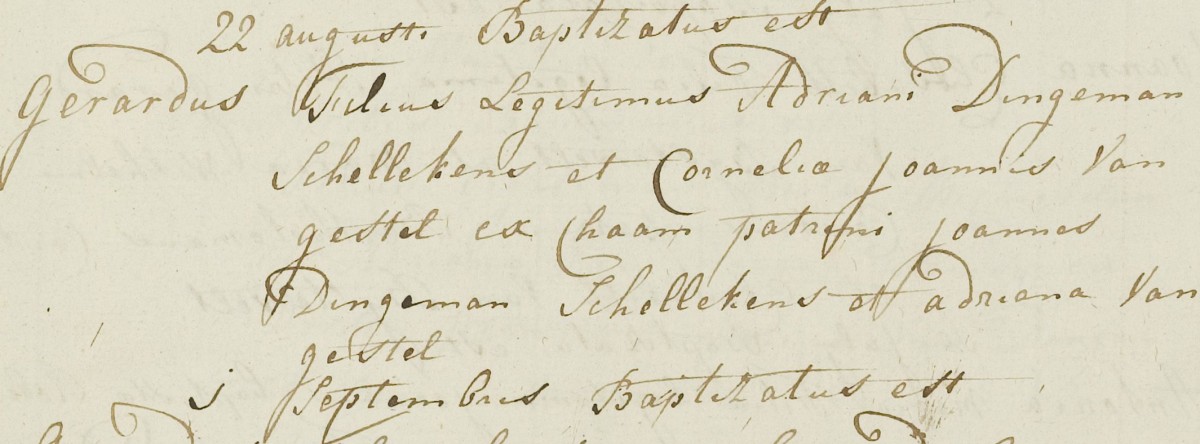 22 augusti Baptizatus est
Gerardus Filius Legitimus Adriani Dingeman
Schellekens et Corneliæ joannis Van
gestel ex Chaam patrini joannes
Dingeman Schellekens et adriana Van
gestel
j Septembris Baptizatus est